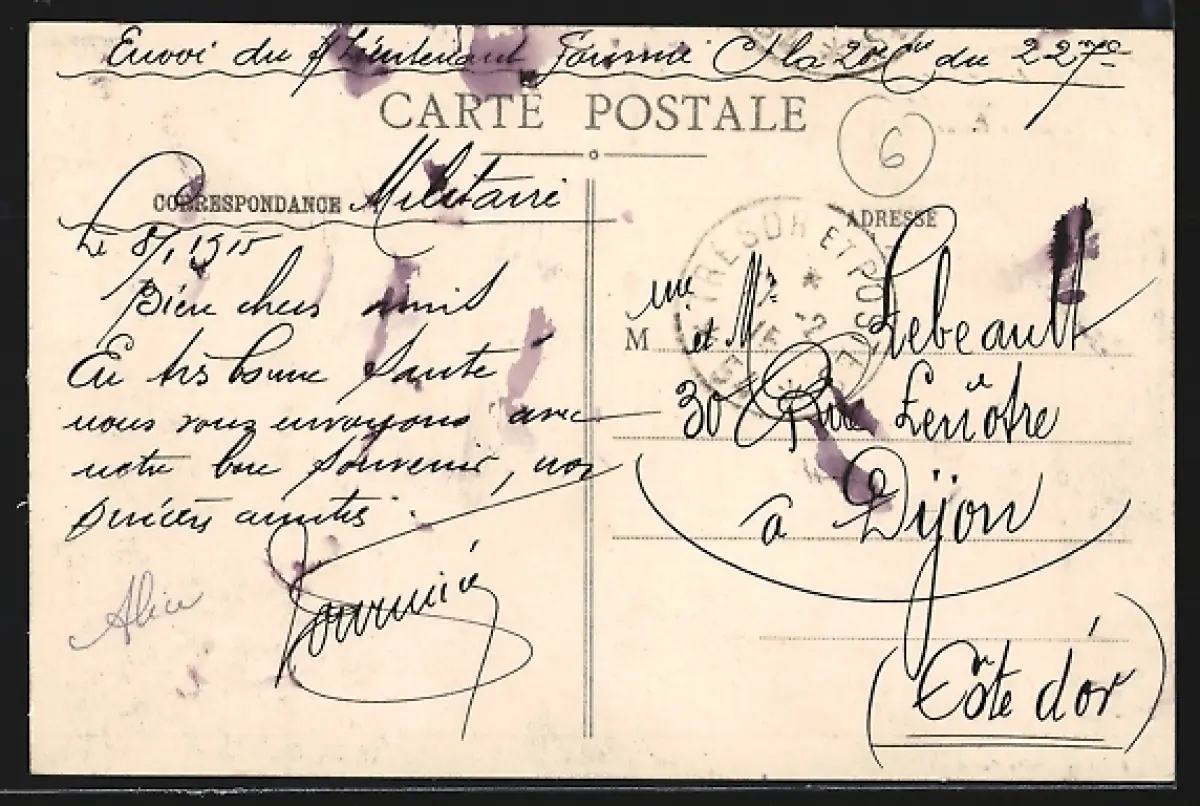 Envoi du s/Lieutenant Fournié Ct la 20e Cie du 227e
CARTE POSTALE
6
CORRESPONDANCE Militaire
Le 8/1 1915
Bien chers amis
En très bonne Santé
nous vous envoyons avec
notre bon Souvenir, nos
sincères amitiés.
Fournié
Alice
ADRESSE
TRESOR ET POSTES
M me et Mr Lebeault
30 Rue Lenôtre
à Dijon
(Côte d'or)